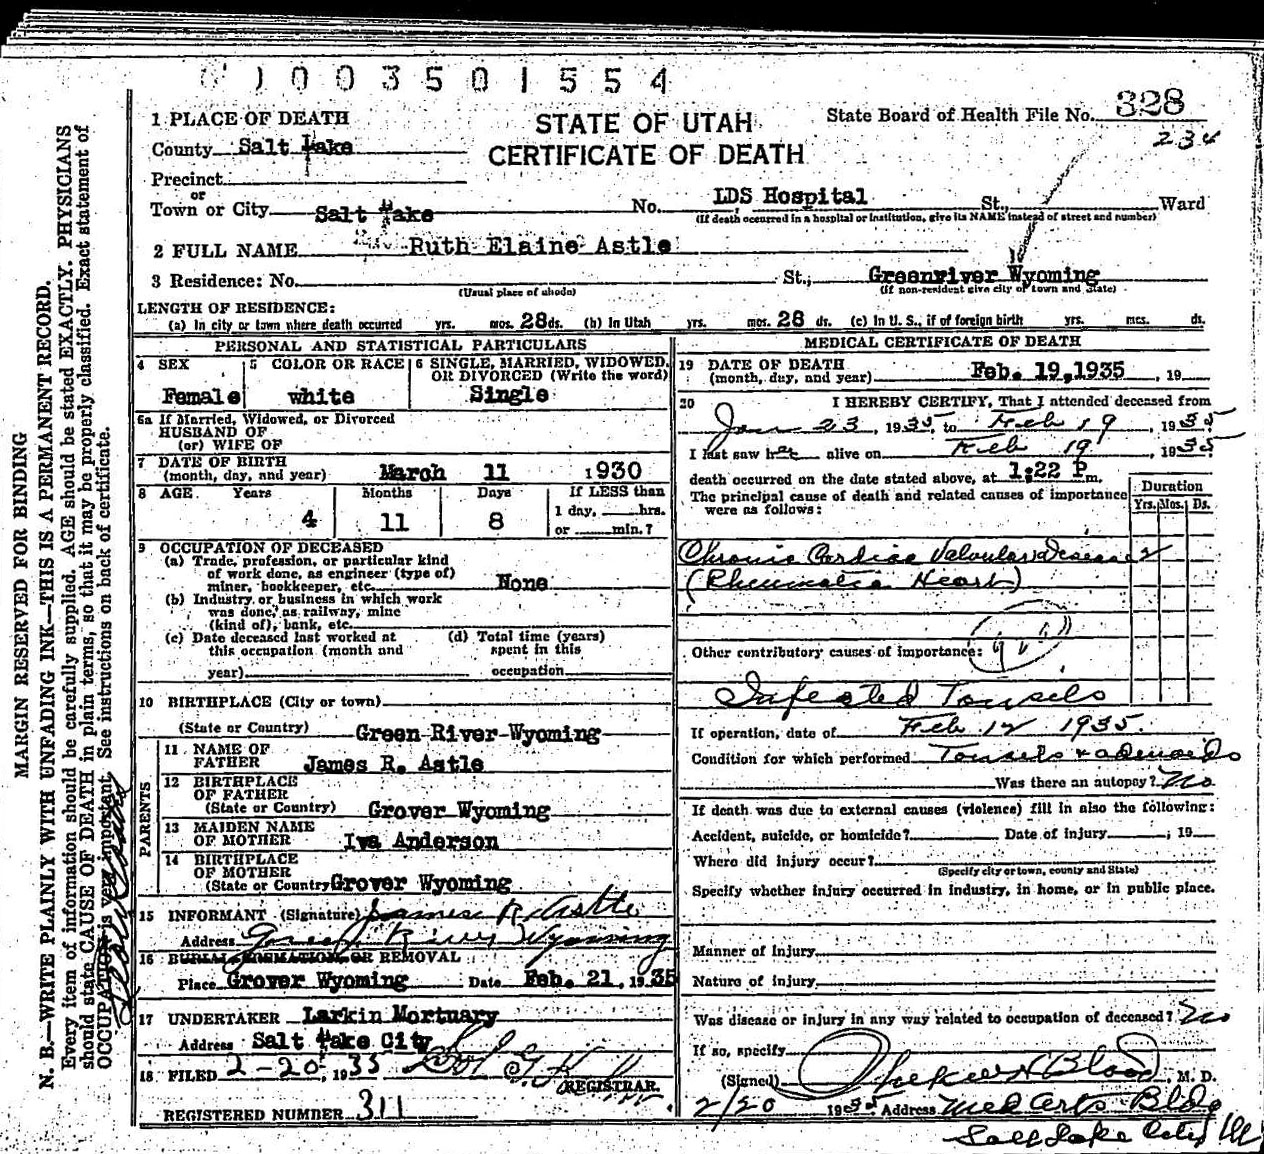 1003501554
1 PLACE OF DEATH
County Salt Lake
Precinct
or
Town or City Salt Lake
STATE OF UTAH
CERTIFICATE OF DEATH
State Board of Health File No. 328
234
No. LDS Hospital St., Ward
(If death occurred in a hospital or institution, give its NAME instead of street and number)
2 FULL NAME Ruth Elaine Astle
3 Residence: No. St., Greenriver Wyoming
(Usual place of abode) (If non-resident give city or town and State)
LENGTH OF RESIDENCE:
(a) In city or town where death occurred yrs. mos. 28 ds. (b) In Utah yrs. mos. 28 ds. (c) In U. S., if of foreign birth yrs. mos. ds.
PERSONAL AND STATISTICAL PARTICULARS
4 SEX Female
5 COLOR OR RACE white
6 SINGLE, MARRIED, WIDOWED,
OR DIVORCED (Write the word)
Single
6a If Married, Widowed, or Divorced
HUSBAND OF
(or) WIFE OF
7 DATE OF BIRTH
(month, day, and year) March 11 1930
8 AGE Years Months Days If LESS than
1 day, hrs.
4 11 8 or min.?
9 OCCUPATION OF DECEASED
(a) Trade, profession, or particular kind
of work done, as engineer (type of)
miner, bookkeeper, etc. None
(b) Industry or business in which work
was done, as railway, mine
(kind of), bank, etc.
(c) Date deceased last worked at (d) Total time (years)
this occupation (month and spent in this
year) occupation
10 BIRTHPLACE (City or town)
(State or Country) Green River Wyoming
PARENTS
11 NAME OF
FATHER James R. Astle
12 BIRTHPLACE
OF FATHER
(State or Country) Grover Wyoming
13 MAIDEN NAME
OF MOTHER Iva Anderson
14 BIRTHPLACE
OF MOTHER
(State or Country Grover Wyoming
15 INFORMANT (Signature) James R Astle
Address Green River Wyoming
16 BURIAL, CREMATION, OR REMOVAL
Place Grover Wyoming Date Feb. 21, 1935
17 UNDERTAKER Larkin Mortuary
Address Salt Lake City
18 FILED 2-20, 1935
REGISTRAR.
REGISTERED NUMBER 311
MEDICAL CERTIFICATE OF DEATH
19 DATE OF DEATH
(month, day, and year) Feb. 19,1935, 19
20 I HEREBY CERTIFY, That I attended deceased from
Jan 23, 1935, to Feb 19, 1935
I last saw her alive on Feb 19, 1935
death occurred on the date stated above, at 1:22 P m.
The principal cause of death and related causes of importance
were as follows:
Duration
Yrs. Mos. Ds.
Chronic Cardiac Valvular Disease 2
(Rheumatic Heart)
Other contributory causes of importance:
Infected Tonsils
If operation, date of Feb 12 1935.
Condition for which performed Tonsils & adenoids
Was there an autopsy? No
If death was due to external causes (violence) fill in also the following:
Accident, suicide, or homicide? Date of injury , 19
Where did injury occur?
(Specify city or town, county and State)
Specify whether injury occurred in industry, in home, or in public place.
Manner of injury
Nature of injury
Was disease or injury in any way related to occupation of deceased? No
If so, specify
(Signed) Blood, M. D.
2/20 1935 Address Med Arts Bldg
Salt Lake City Ut
MARGIN RESERVED FOR BINDING
N. B.—WRITE PLAINLY WITH UNFADING INK—THIS IS A PERMANENT RECORD.
Every item of information should be carefully supplied. AGE should be stated EXACTLY. PHYSICIANS
should state CAUSE OF DEATH in plain terms, so that it may be properly classified. Exact statement of
OCCUPATION is very important. See instructions on back of certificate.